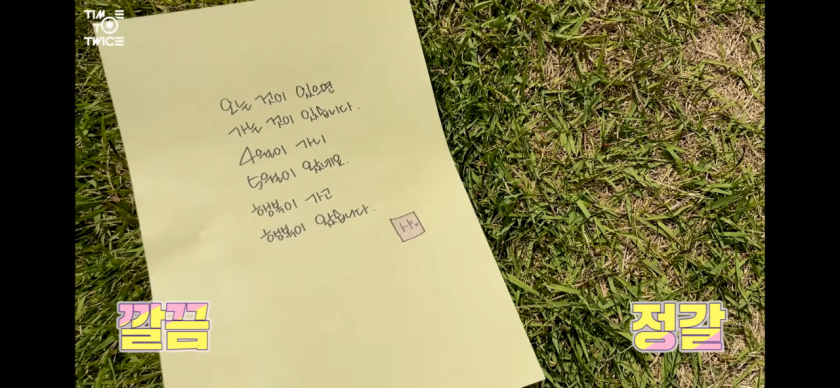 TIME
TO
TWICE
오는 것이 있으면
가는 것이 있습니다.
4월이 가니
5월이 왔네요.
행복이 가고
행복이 왔습니다.
깔끔
정갈